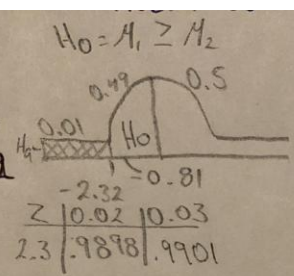 H₀ = M₁ ≥ M₂
0.49 0.5
0.01
Hₐ H₀
-2.32 -0.81
Z 0.02 0.03
2.3 .9898 .9901